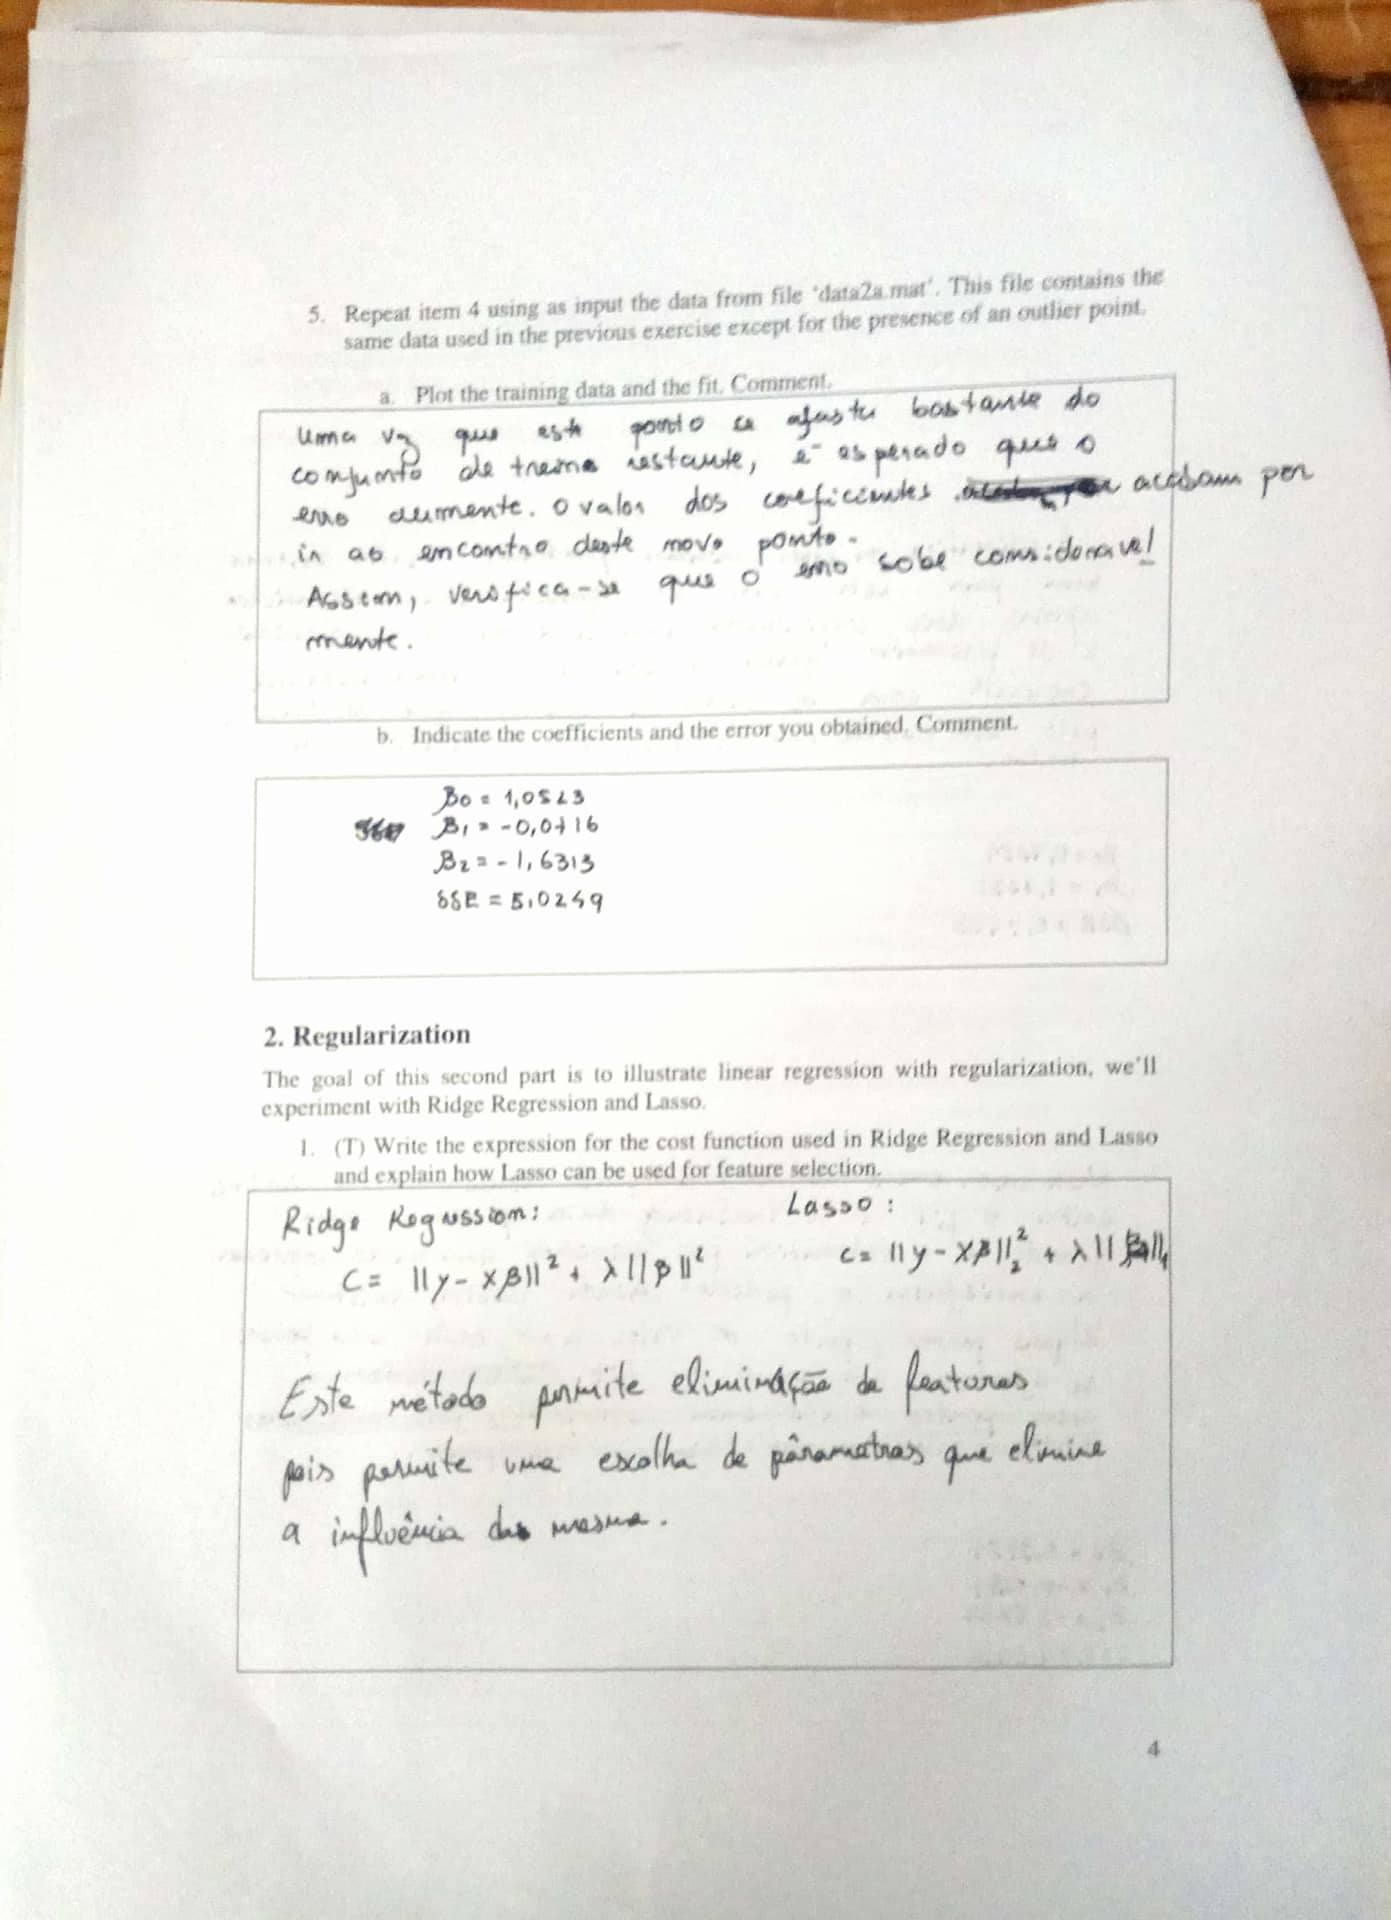 5. Repeat item 4 using as input the data from file 'data2a.mat'. This file contains the
same data used in the previous exercise except for the presence of an outlier point.
a. Plot the training data and the fit. Comment.
Uma vez que este ponto se afasta bastante do
conjunto de treino restante, é esperado que o
erro aumente. O valor dos coeficientes acabam por
ir ao encontro deste novo ponto.
Assim, verifica-se que o erro sobe consideravel
mente.
b. Indicate the coefficients and the error you obtained. Comment.
β0 = 1,0523
β1 = -0,0716
β2 = -1,6313
SSE = 5,0259
2. Regularization
The goal of this second part is to illustrate linear regression with regularization, we'll
experiment with Ridge Regression and Lasso.
1. (T) Write the expression for the cost function used in Ridge Regression and Lasso
and explain how Lasso can be used for feature selection.
Ridge Regression: Lasso:
C = ||y - xβ||² + λ||β||² C = ||y - Xβ||₂² + λ||β||₁
Este método permite eliminação de features
pois permite uma escolha de pârametros que elimine
a influência da mesma.
4